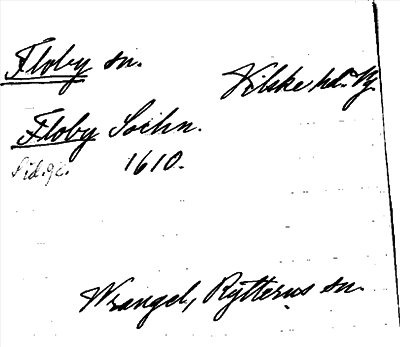 Floby sn.
Vilske hd. Vg.
Floby Sochn.
1610.
Wrangel, Rytterus sn.